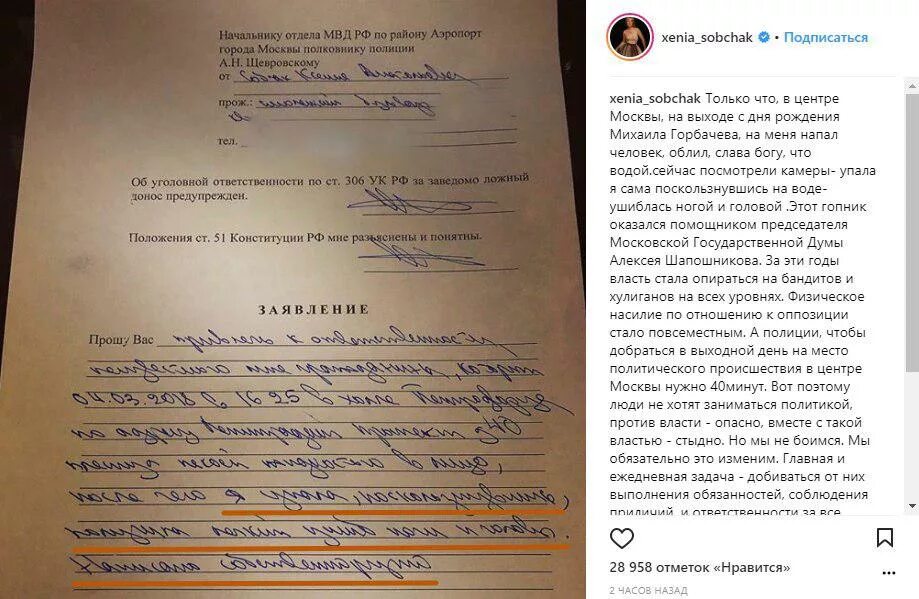 Начальнику отдела МВД РФ по району Аэропорт
города Москвы полковнику полиции
А.Н. Щевровскому
от Собчак Ксения Анатольевна
прож.:
тел.
Об уголовной ответственности по ст. 306 УК РФ за заведомо ложный
донос предупрежден.
Положения ст. 51 Конституции РФ мне разъяснены и понятны.
ЗАЯВЛЕНИЕ
Прошу Вас привлечь к ответственности
неизвестного мне гражданина, который
04.03.2018 в 16 25 в холле
по адресу Ленинградский проспект
в лицо,
после чего я упала, поскользнувшись,
получила ушиб ноги и головы.
Написано собственноручно
xenia_sobchak • Подписаться
xenia_sobchak Только что, в центре
Москвы, на выходе с дня рождения
Михаила Горбачева, на меня напал
человек, облил, слава богу, что
водой.сейчас посмотрели камеры- упала
я сама поскользнувшись на воде-
ушиблась ногой и головой .Этот гопник
оказался помощником председателя
Московской Государственной Думы
Алексея Шапошникова. За эти годы
власть стала опираться на бандитов и
хулиганов на всех уровнях. Физическое
насилие по отношению к оппозиции
стало повсеместным. А полиции, чтобы
добраться в выходной день на место
политического происшествия в центре
Москвы нужно 40минут. Вот поэтому
люди не хотят заниматься политикой,
против власти - опасно, вместе с такой
властью - стыдно. Но мы не боимся. Мы
обязательно это изменим. Главная и
ежедневная задача - добиваться от них
выполнения обязанностей, соблюдения
приличий, и ответственности за все
28 958 отметок «Нравится»
2 ЧАСОВ НАЗАД